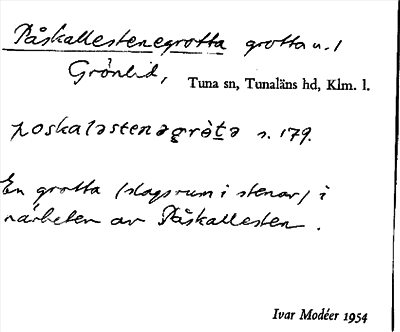 Påskallestenegrotta grotta n. l
Grönlid, Tuna sn, Tunaläns hd, Klm. l.
poskaləstenəgròtə s. 179.
En grotta (slags rum i stenar) i
närheten av Påskallesten.
Ivar Modéer 1954